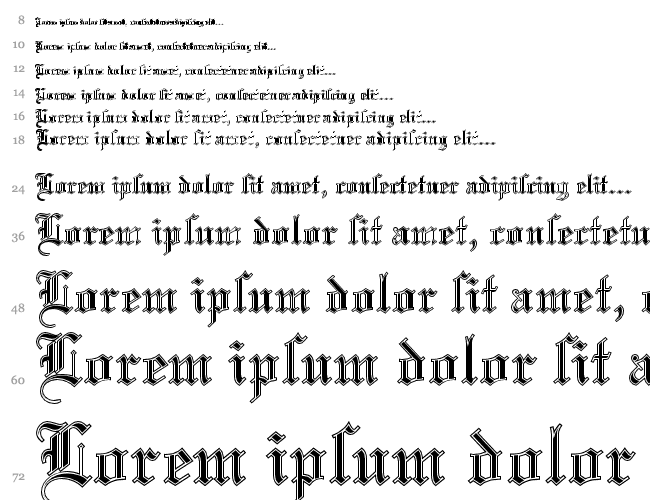 8 Lorem ipſum dolor ſit amet, conſectetuer adipiſcing elit...
10 Lorem ipſum dolor ſit amet, conſectetuer adipiſcing elit...
12 Lorem ipſum dolor ſit amet, conſectetuer adipiſcing elit...
14 Lorem ipſum dolor ſit amet, conſectetuer adipiſcing elit...
16 Lorem ipſum dolor ſit amet, conſectetuer adipiſcing elit...
18 Lorem ipſum dolor ſit amet, conſectetuer adipiſcing elit...
24 Lorem ipſum dolor ſit amet, conſectetuer adipiſcing elit...
36 Lorem ipſum dolor ſit amet, conſectetu
48 Lorem ipſum dolor ſit amet,
60 Lorem ipſum dolor ſit a
72 Lorem ipſum dolor